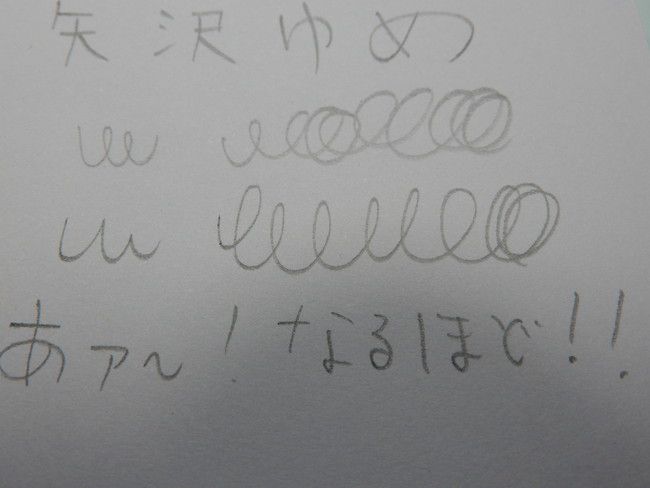 矢沢ゆめ
あァ〜！なるほど！！